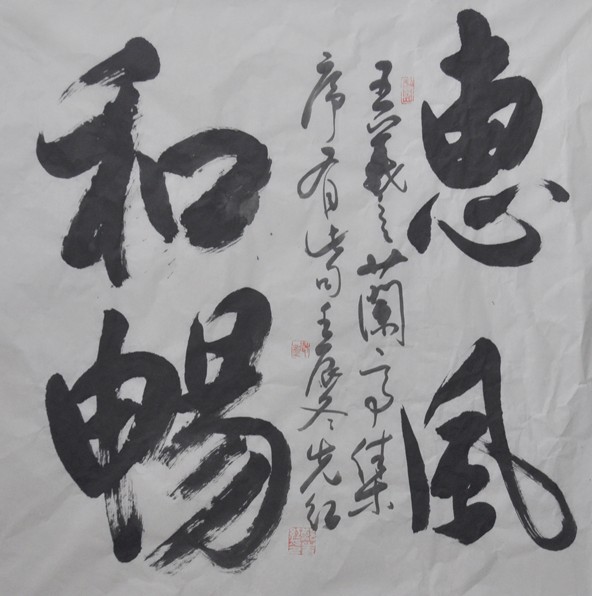 惠風
王羲之蘭亭集
序有此句壬辰冬先红
和暢